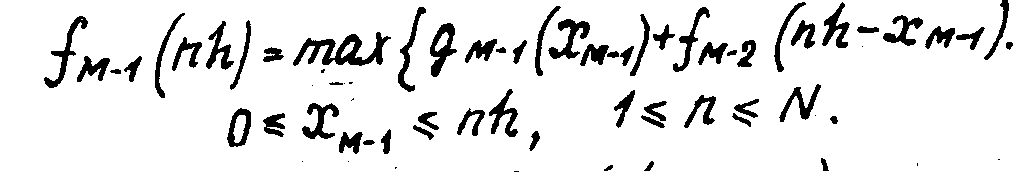 f_{M-1}(nh) = max{g_{M-1}(x_{M-1}) + f_{M-2}(nh - x_{M-1}).
0 ≤ x_{M-1} ≤ nh, 1 ≤ n ≤ N.